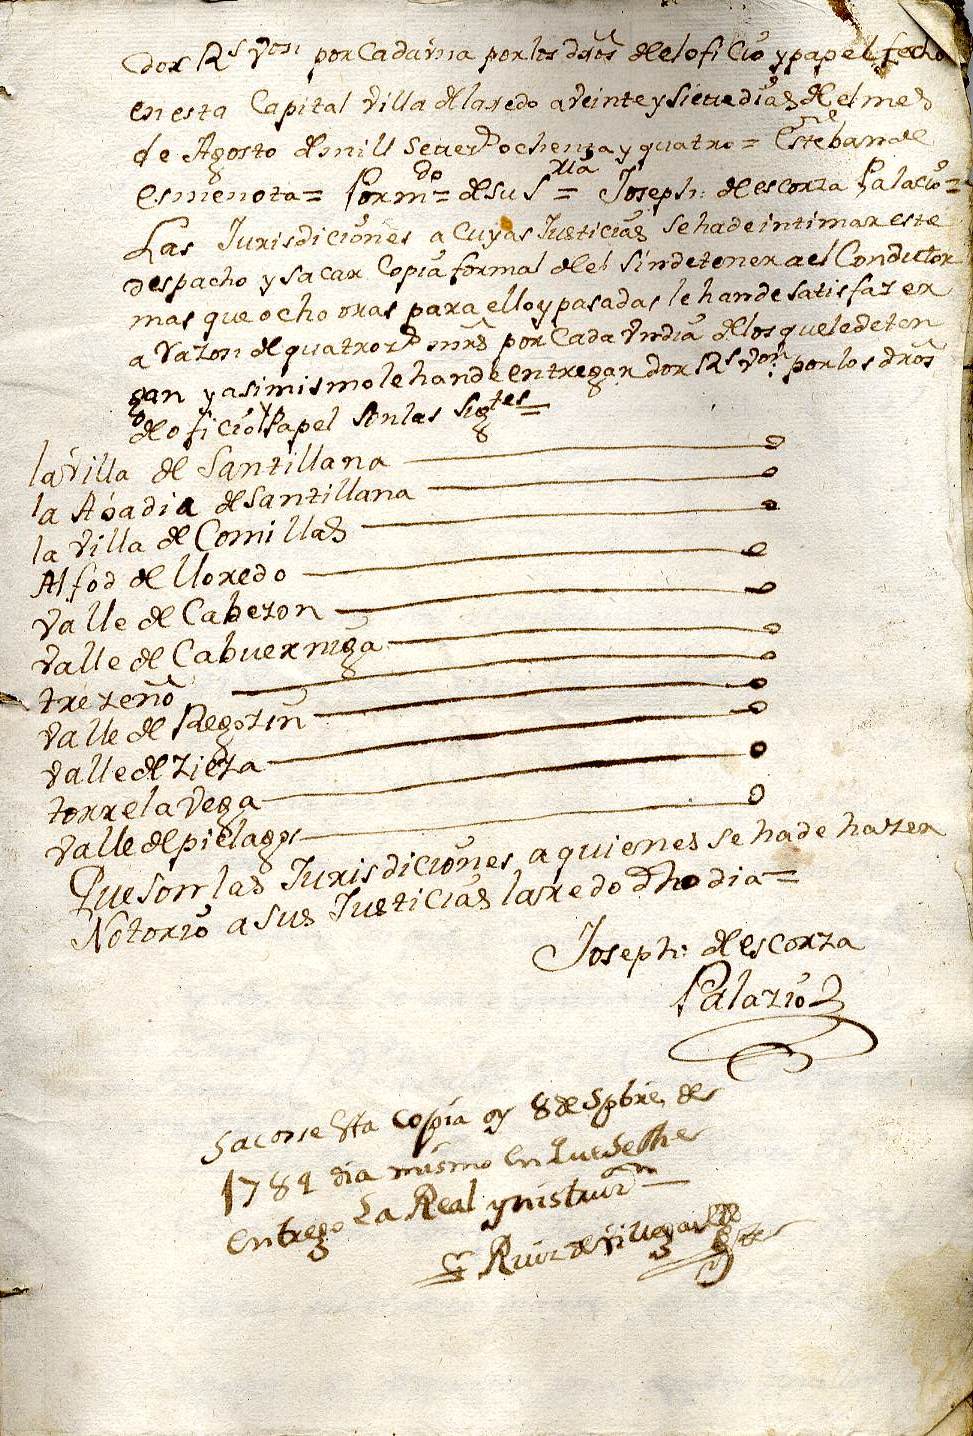 dos Rs Von por cada vna por los dros del oficio y papel fecho
en esta Capital Villa de laredo a veinte y siete dias del mes
de Agosto de mill setezs ochenta y quatro = Esteban de
esmenota = Por mdo = de su Sria = Joseph: de escorza Palacio =
Las Jurisdiciones a Cuyas Justicias se ha de intimar este
despacho y sacar Copia formal del sin detener a el Conductor
mas que ocho oras para ello y pasadas le han de satisfazer
a Razon de quatrozs mrs por Cada Vn dia de los que le deten
gan y asimismo le han de entregar dos Rs Von por los dros
de oficio y Papel son las sigtes =
la Villa de Santillana
la Abadia de Santillana
la Villa de Comillas
Alfoz de lloredo
Valle de Cabezon
Valle de Cabuerniga
trezeño
Valle de Regozin
Valle de Zieza
torrelavega
Valle de pielagos
Que son las Jurisdiciones a quienes se ha de hazer
Notorio a sus Justicias laredo dho dia =
Joseph: de escorza
Palazio
Sacose Esta copia oy 8 de Spbre de
1784 dia mismo en que se me
entrego La Real ynistruzn
Ruiz de Villegas